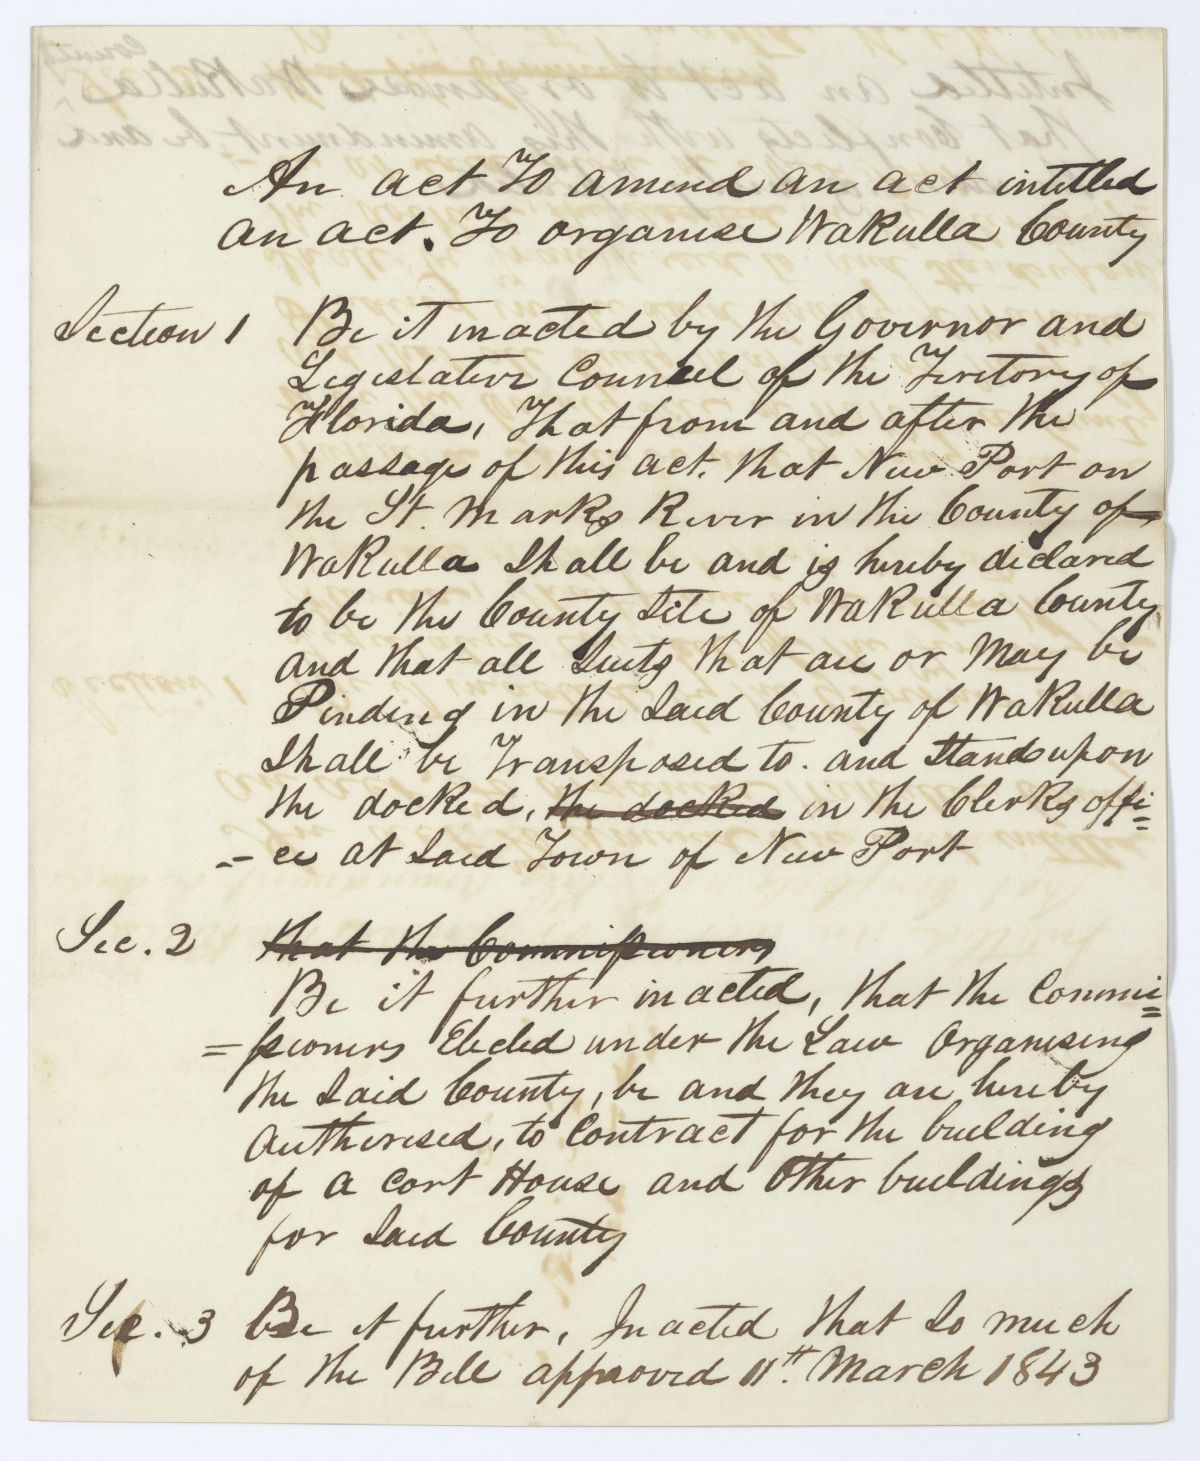 An act To amend an act intitled
an act. To organise Wakulla County
Section 1 Be it inacted by the Governor and
Legislative Councel of the Teritory of
Florida, That from and after the
passage of this act. that New Port on
the St. Marks River in the County of
Wakulla Shall be and is hereby declared
to be the County Site of Wakulla County
and that all Suits that are or May be
Pinding in the Said County of Wakulla
Shall be Transposed to. and Stands upon
the docked, the docked in the Clerks offi=
=ce at Said Town of New Port
Sec. 2 that the Commissioners
Be it further inacted, that the Commi=
=ssioners Elected under the Law Organising
the Said County, be and they are hereby
Autherised, to Contract for the building
of a Cort House and Other buildings
for Said County
Sec. 3 Be it further, Inacted that So much
of the Bill approved 11th. March 1843